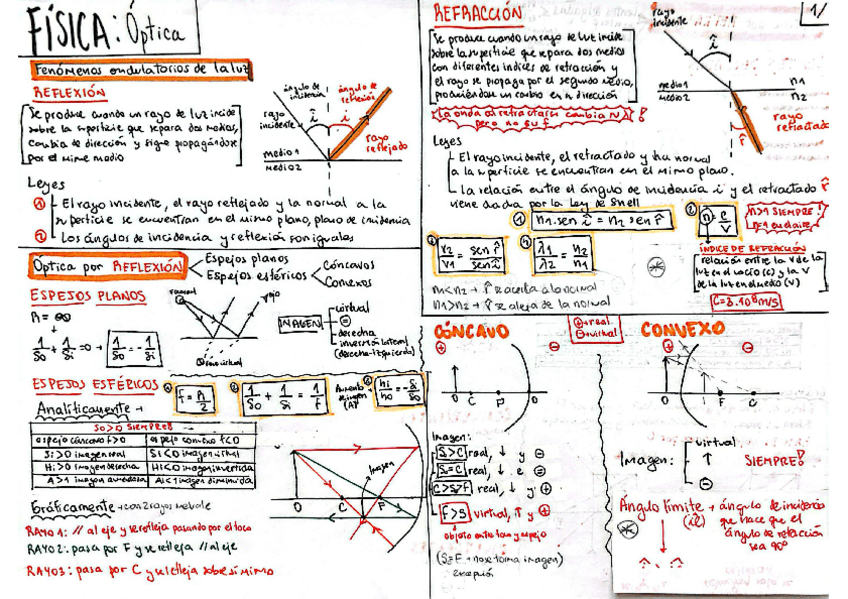 FÍSICA: Óptica
Fenómenos ondulatorios de la luz
REFLEXIÓN
Se produce cuando un rayo de luz incide
sobre la superficie que separa dos medios,
cambia de dirección y sigue propagándose
por el mismo medio
ángulo de incidencia
ángulo de reflexión
rayo incidente
rayo reflejado
medio 1
medio 2
Leyes
1 El rayo incidente, el rayo reflejado y la normal a la
superficie se encuentran en el mismo plano, plano de incidencia
2 Los ángulos de incidencia y reflexión son iguales
Óptica por REFLEXIÓN
Espejos planos
Espejos esféricos
Cóncavos
Convexos
ESPEJOS PLANOS
R = ∞
1/so + 1/si = 0 → 1/so = -1/si
foco virtual
IMAGEN
virtual
=
derecha
inversión lateral
(derecha-izquierda)
ESPEJOS ESFÉRICOS
f = R/2
1/so + 1/si = 1/f
Aumento de imagen (A)
hi/ho = -si/so
Analíticamente →
so>0 SIEMPRE!
espejo cóncavo f>0
espejo convexo f<0
si>0 imagen real
si<0 imagen virtual
Hi>0 imagen derecha
Hi<0 imagen invertida
A>1 imagen aumentada
A<1 imagen disminuida
Gráficamente → con 2 rayos me vale
RAYO 1: // al eje y se refleja pasando por el foco
RAYO 2: pasa por F y se refleja // al eje
RAYO 3: pasa por C y se refleja sobre sí mismo
Imagen
O
C
F
REFRACCIÓN
1/
Se produce cuando un rayo de luz incide
sobre la superficie que separa dos medios
con diferentes índices de refracción y
el rayo se propaga por el segundo medio,
produciéndose un cambio en su dirección
La onda al refractarse cambia
pero no su f
rayo incidente
medio 1
medio 2
n1
n2
rayo refractado
Leyes
El rayo incidente, el refractado y la normal
a la superficie se encuentran en el mismo plano.
La relación entre el ángulo de incidencia i y el refractado r̂
viene dada por la ley de Snell
1 n1.sen î = n2 sen r̂
2 n = c/v
n>1 SIEMPRE!
n=1 en el aire
v2/v1 = sen r̂/sen î
4 λ1/λ2 = n2/n1
ÍNDICE DE REFRACCIÓN
relación entre la v de la
luz en el vacío (c) y la v
de la luz en el medio (v)
c=3·10⁸m/s
n1<n2 → r̂ se acerca a la normal
n1>n2 → r̂ se aleja de la normal
⊕→real
⊖→virtual
CÓNCAVO
CONVEXO
C
O
F
C
Imagen:
S>C real, ↓ y ⊖
S=C real, ↓ e ⊜
C>S>F real, ↓ y ⊕
F>S virtual, ↑ y ⊕
objeto entre foco y espejo
(S=F → no se forma imagen)
excepción
Imagen:
virtual
↑
⊖
SIEMPRE!
Ángulo límite → ángulo de incidencia
que hace que el
ángulo de refracción
sea 90º